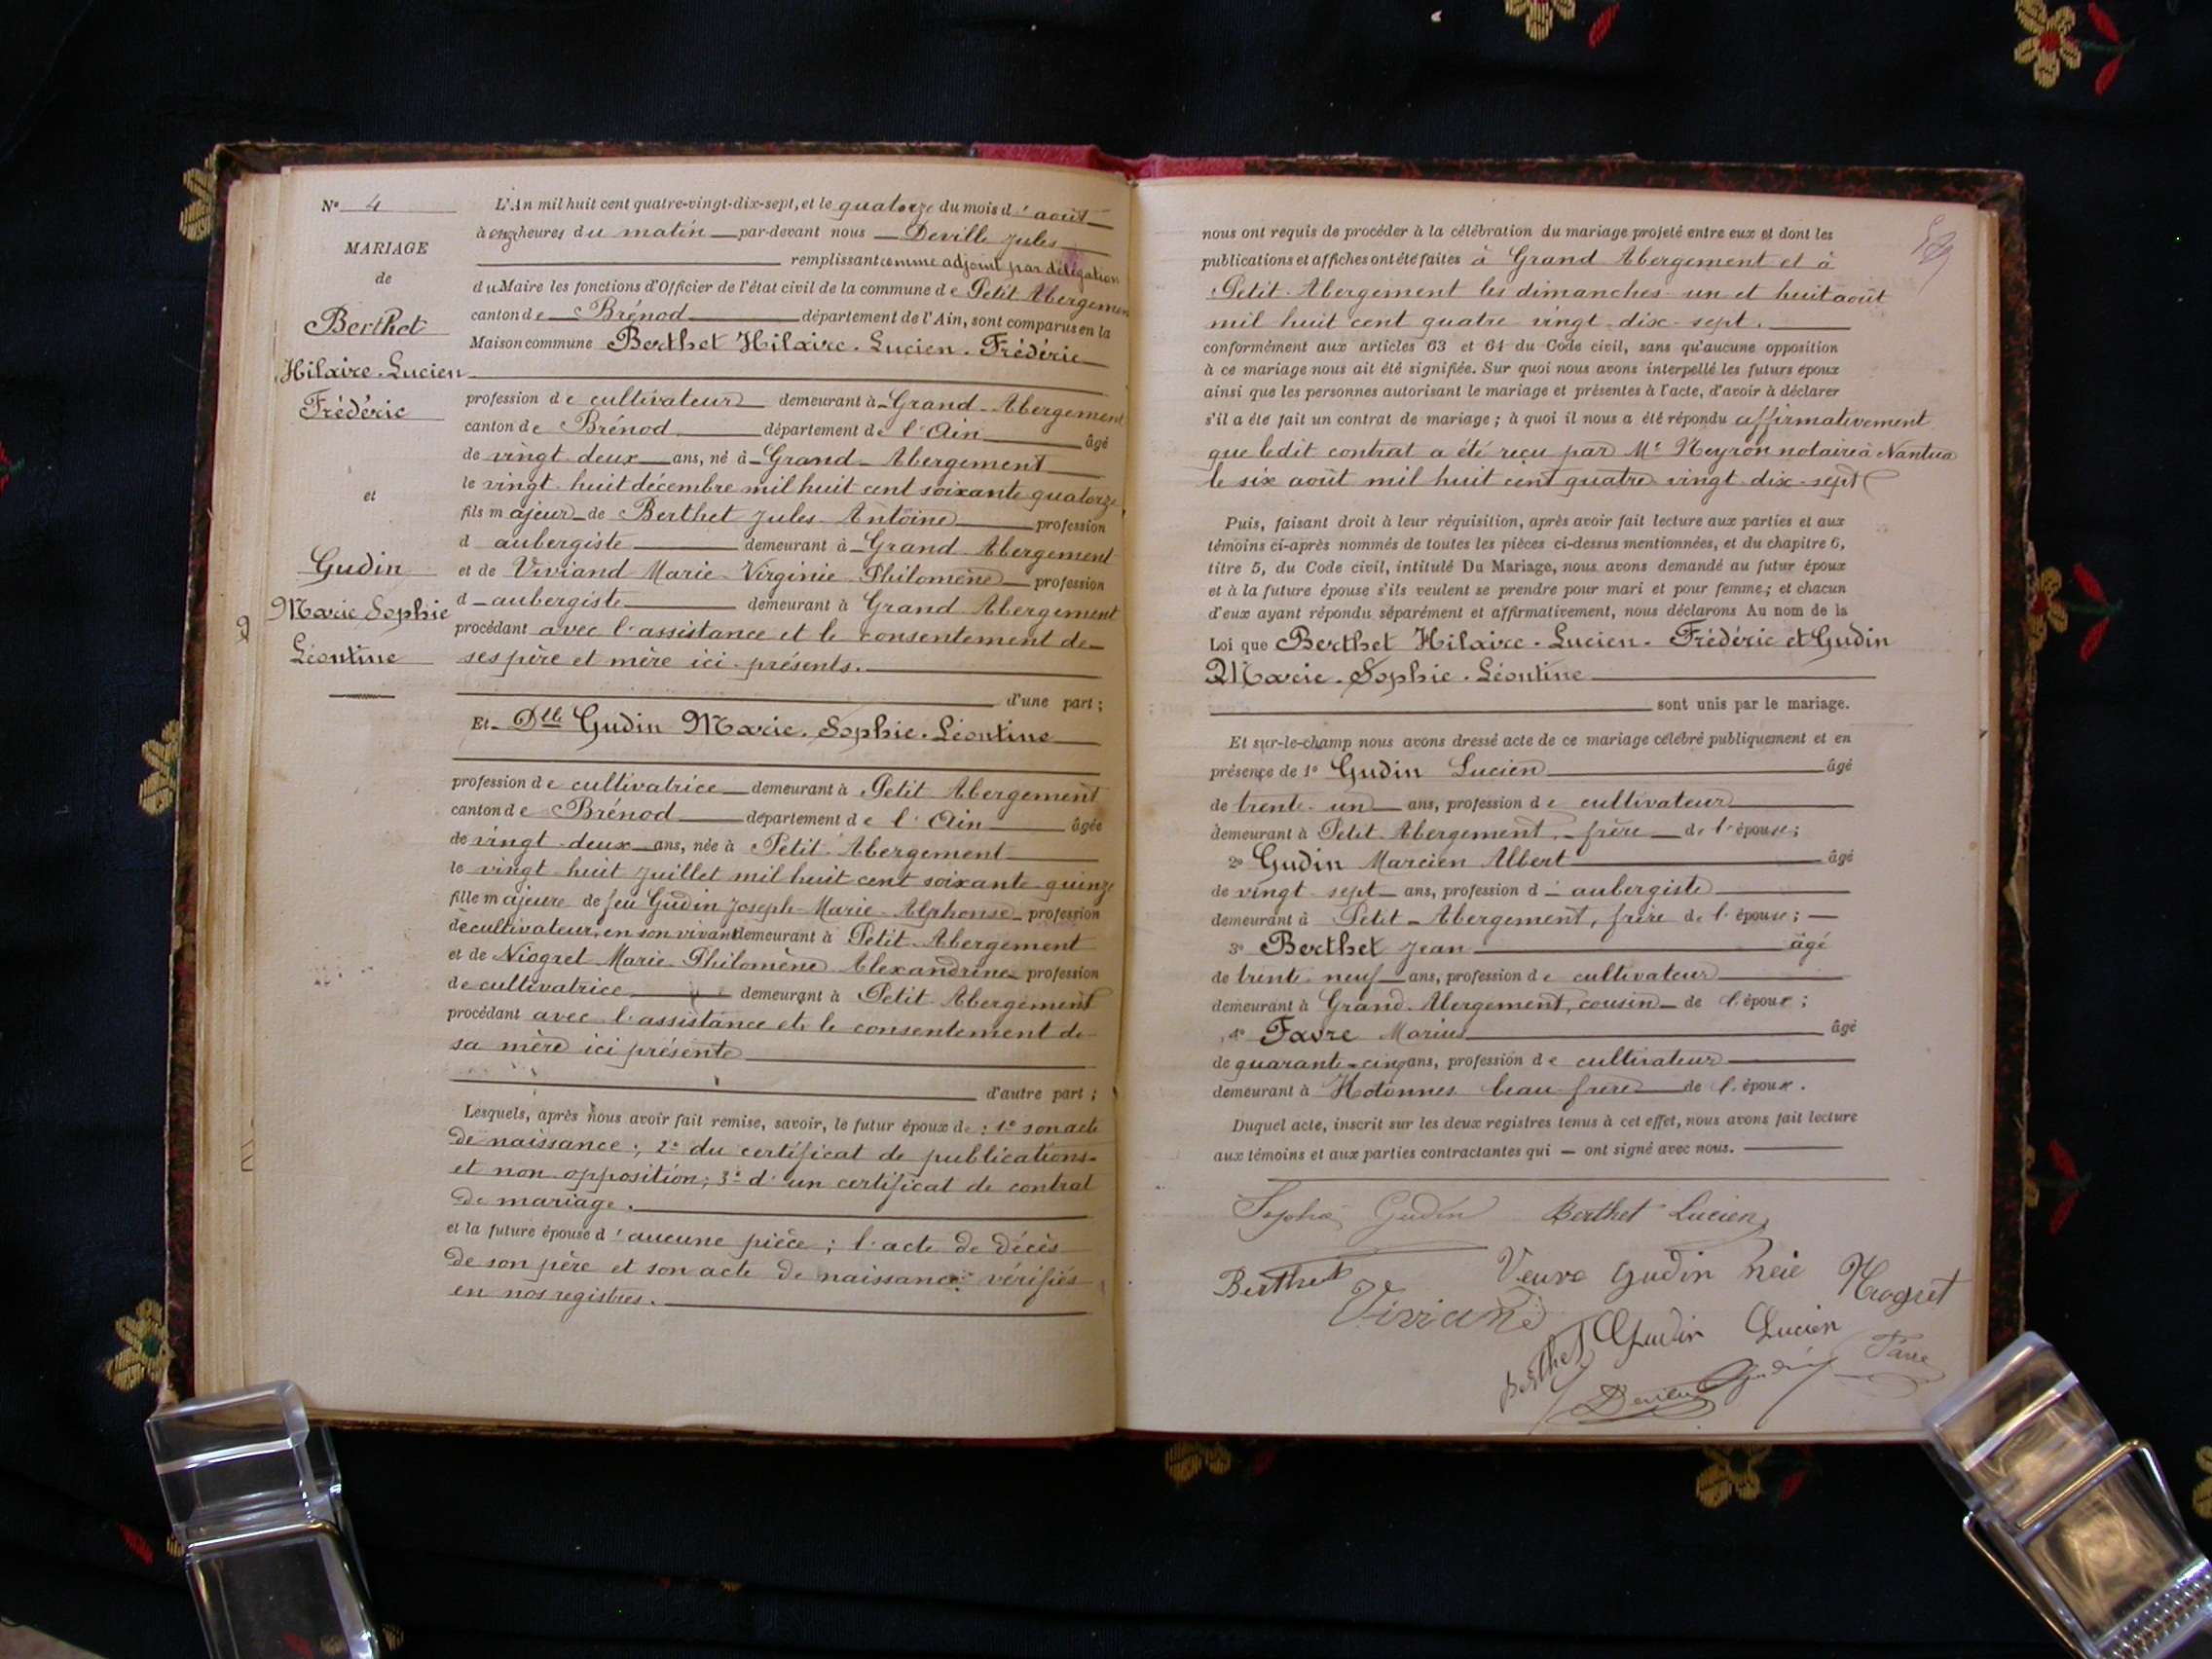 N° 4
MARIAGE
de
Berthet
Hilaire-Lucien
Frédéric
et
Gudin
Marie Sophie
Léontine
L'An mil huit cent quatre-vingt-dix-sept, et le quatorze du mois d'août
à onze heures du matin par-devant nous Deville Jules
remplissant comme adjoint par délégation
du Maire les fonctions d'Officier de l'état civil de la commune de Petit Abergement
canton de Brénod département de l'Ain, sont comparus en la
Maison commune Berthet Hilaire-Lucien-Frédéric
profession de cultivateur demeurant à Grand-Abergement
canton de Brénod département de l'Ain âgé
de vingt deux ans, né à Grand-Abergement
le vingt-huit décembre mil huit cent soixante quatorze
fils majeur de Berthet Jules-Antoine profession
d aubergiste demeurant à Grand-Abergement
et de Viviand Marie-Virginie-Philomène profession
d aubergiste demeurant à Grand-Abergement
procédant avec l'assistance et le consentement de
ses père et mère ici-présents.
d'une part ;
Et Dlle Gudin Marie-Sophie-Léontine
profession de cultivatrice demeurant à Petit-Abergement
canton de Brénod département de l'Ain âgée
de vingt-deux ans, née à Petit-Abergement
le vingt-huit Juillet mil huit cent soixante-quinze
fille majeure de feu Gudin Joseph-Marie-Alphonse profession
de cultivateur, en son vivant demeurant à Petit-Abergement
et de Niogret Marie-Philomène Alexandrine profession
de cultivatrice demeurant à Petit-Abergement
procédant avec l'assistance et le consentement de
sa mère ici présente
d'autre part ;
Lesquels, après nous avoir fait remise, savoir, le futur époux de : 1° son acte
de naissance ; 2° du certificat de publications
et non opposition ; 3° d'un certificat de contrat
de mariage.
et la future épouse d'aucune pièce ; l'acte de décès
de son père et son acte de naissance vérifiés
en nos registres.
nous ont requis de procéder à la célébration du mariage projeté entre eux et dont les
publications et affiches ont été faites à Grand Abergement et à
Petit-Abergement les dimanches un et huit août
mil huit cent quatre-vingt-dix-sept.
conformément aux articles 63 et 64 du Code civil, sans qu'aucune opposition
à ce mariage nous ait été signifiée. Sur quoi nous avons interpellé les futurs époux
ainsi que les personnes autorisant le mariage et présentes à l'acte, d'avoir à déclarer
s'il a été fait un contrat de mariage ; à quoi il nous a été répondu affirmativement
que ledit contrat a été reçu par Me Neyron notaire à Nantua
le six août mil huit cent quatre-vingt-dix-sept
Puis, faisant droit à leur réquisition, après avoir fait lecture aux parties et aux
témoins ci-après nommés de toutes les pièces ci-dessus mentionnées, et du chapitre 6,
titre 5, du Code civil, intitulé Du Mariage, nous avons demandé au futur époux
et à la future épouse s'ils veulent se prendre pour mari et pour femme ; et chacun
d'eux ayant répondu séparément et affirmativement, nous déclarons Au nom de la
Loi que Berthet Hilaire-Lucien-Frédéric et Gudin
Marie-Sophie-Léontine
sont unis par le mariage.
Et sur-le-champ nous avons dressé acte de ce mariage célébré publiquement et en
présence de 1° Gudin Lucien âgé
de trente-un ans, profession de cultivateur
demeurant à Petit-Abergement, frère de l'épouse ;
2° Gudin Marcien Albert âgé
de vingt-sept ans, profession d'aubergiste
demeurant à Petit-Abergement, frère de l'épouse ;
3° Berthet Jean âgé
de trente-neuf ans, profession de cultivateur
demeurant à Grand-Abergement, cousin de l'époux ;
4° Favre Marius âgé
de quarante-cinq ans, profession de cultivateur
demeurant à Hotonnes beau-frère de l'époux.
Duquel acte, inscrit sur les deux registres tenus à cet effet, nous avons fait lecture
aux témoins et aux parties contractantes qui ont signé avec nous.
Sophie Gudin Berthet Lucien
Berthet Veuve Gudin née Niogret
Viviand
Berthet Gudin Lucien Favre
Deville Gudin